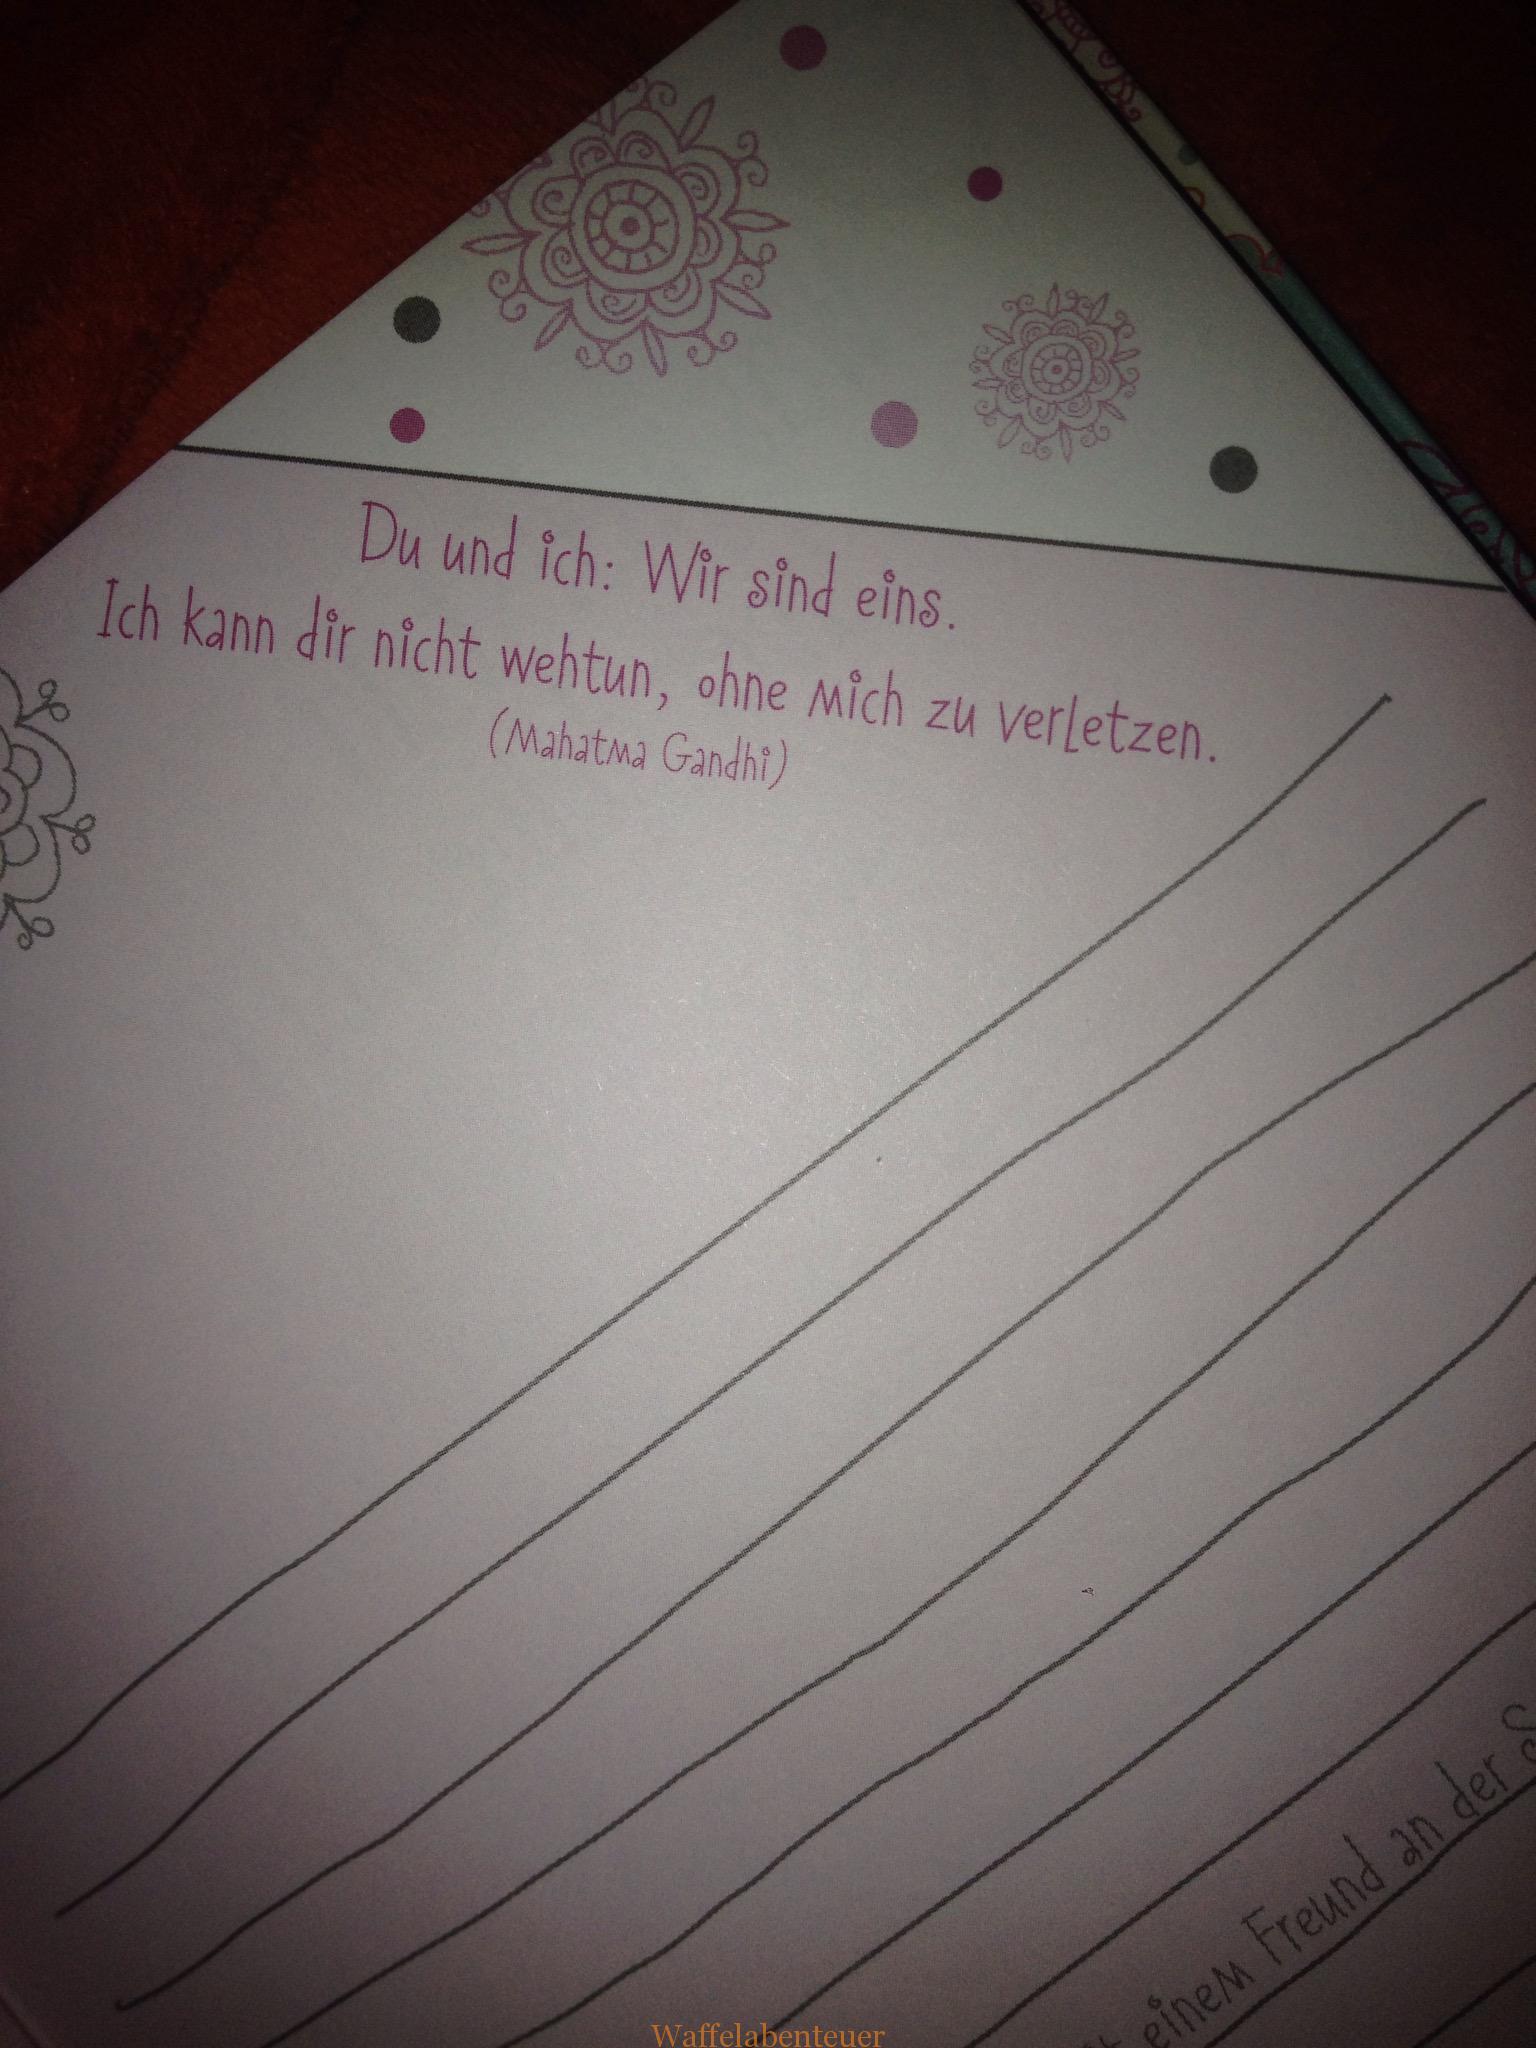 Du und ich: Wir sind eins.
Ich kann dir nicht wehtun, ohne mich zu verletzen.
(Mahatma Gandhi)
einem Freund an der
Waffelabenteuer